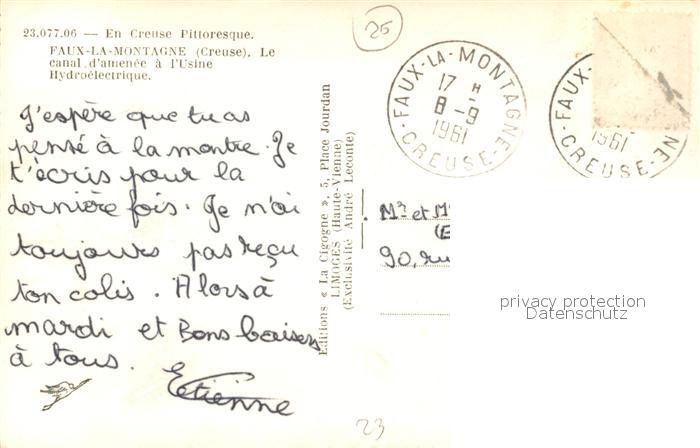 23.077.06 — En Creuse Pittoresque.
FAUX-LA-MONTAGNE (Creuse). Le
canal d'amenée à l'Usine
Hydroélectrique.
J'espère que tu as
pensé à la montre. Je
t'écris pour la
dernière fois. Je n'ai
toujours pas reçu
ton colis. Alors à
mardi et Bons baisers
à tous.
Etienne
Editions « La Cigogne », 5, Place Jourdan
LIMOGES (Haute-Vienne)
(Exclusivité André Leconte)
25
FAUX-LA-MONTAGNE
17 H
8 -9
1961
CREUSE
FAUX-
NE
1961
CREUSE
Mr et M
(E
90, ru
privacy protection
Datenschutz
23